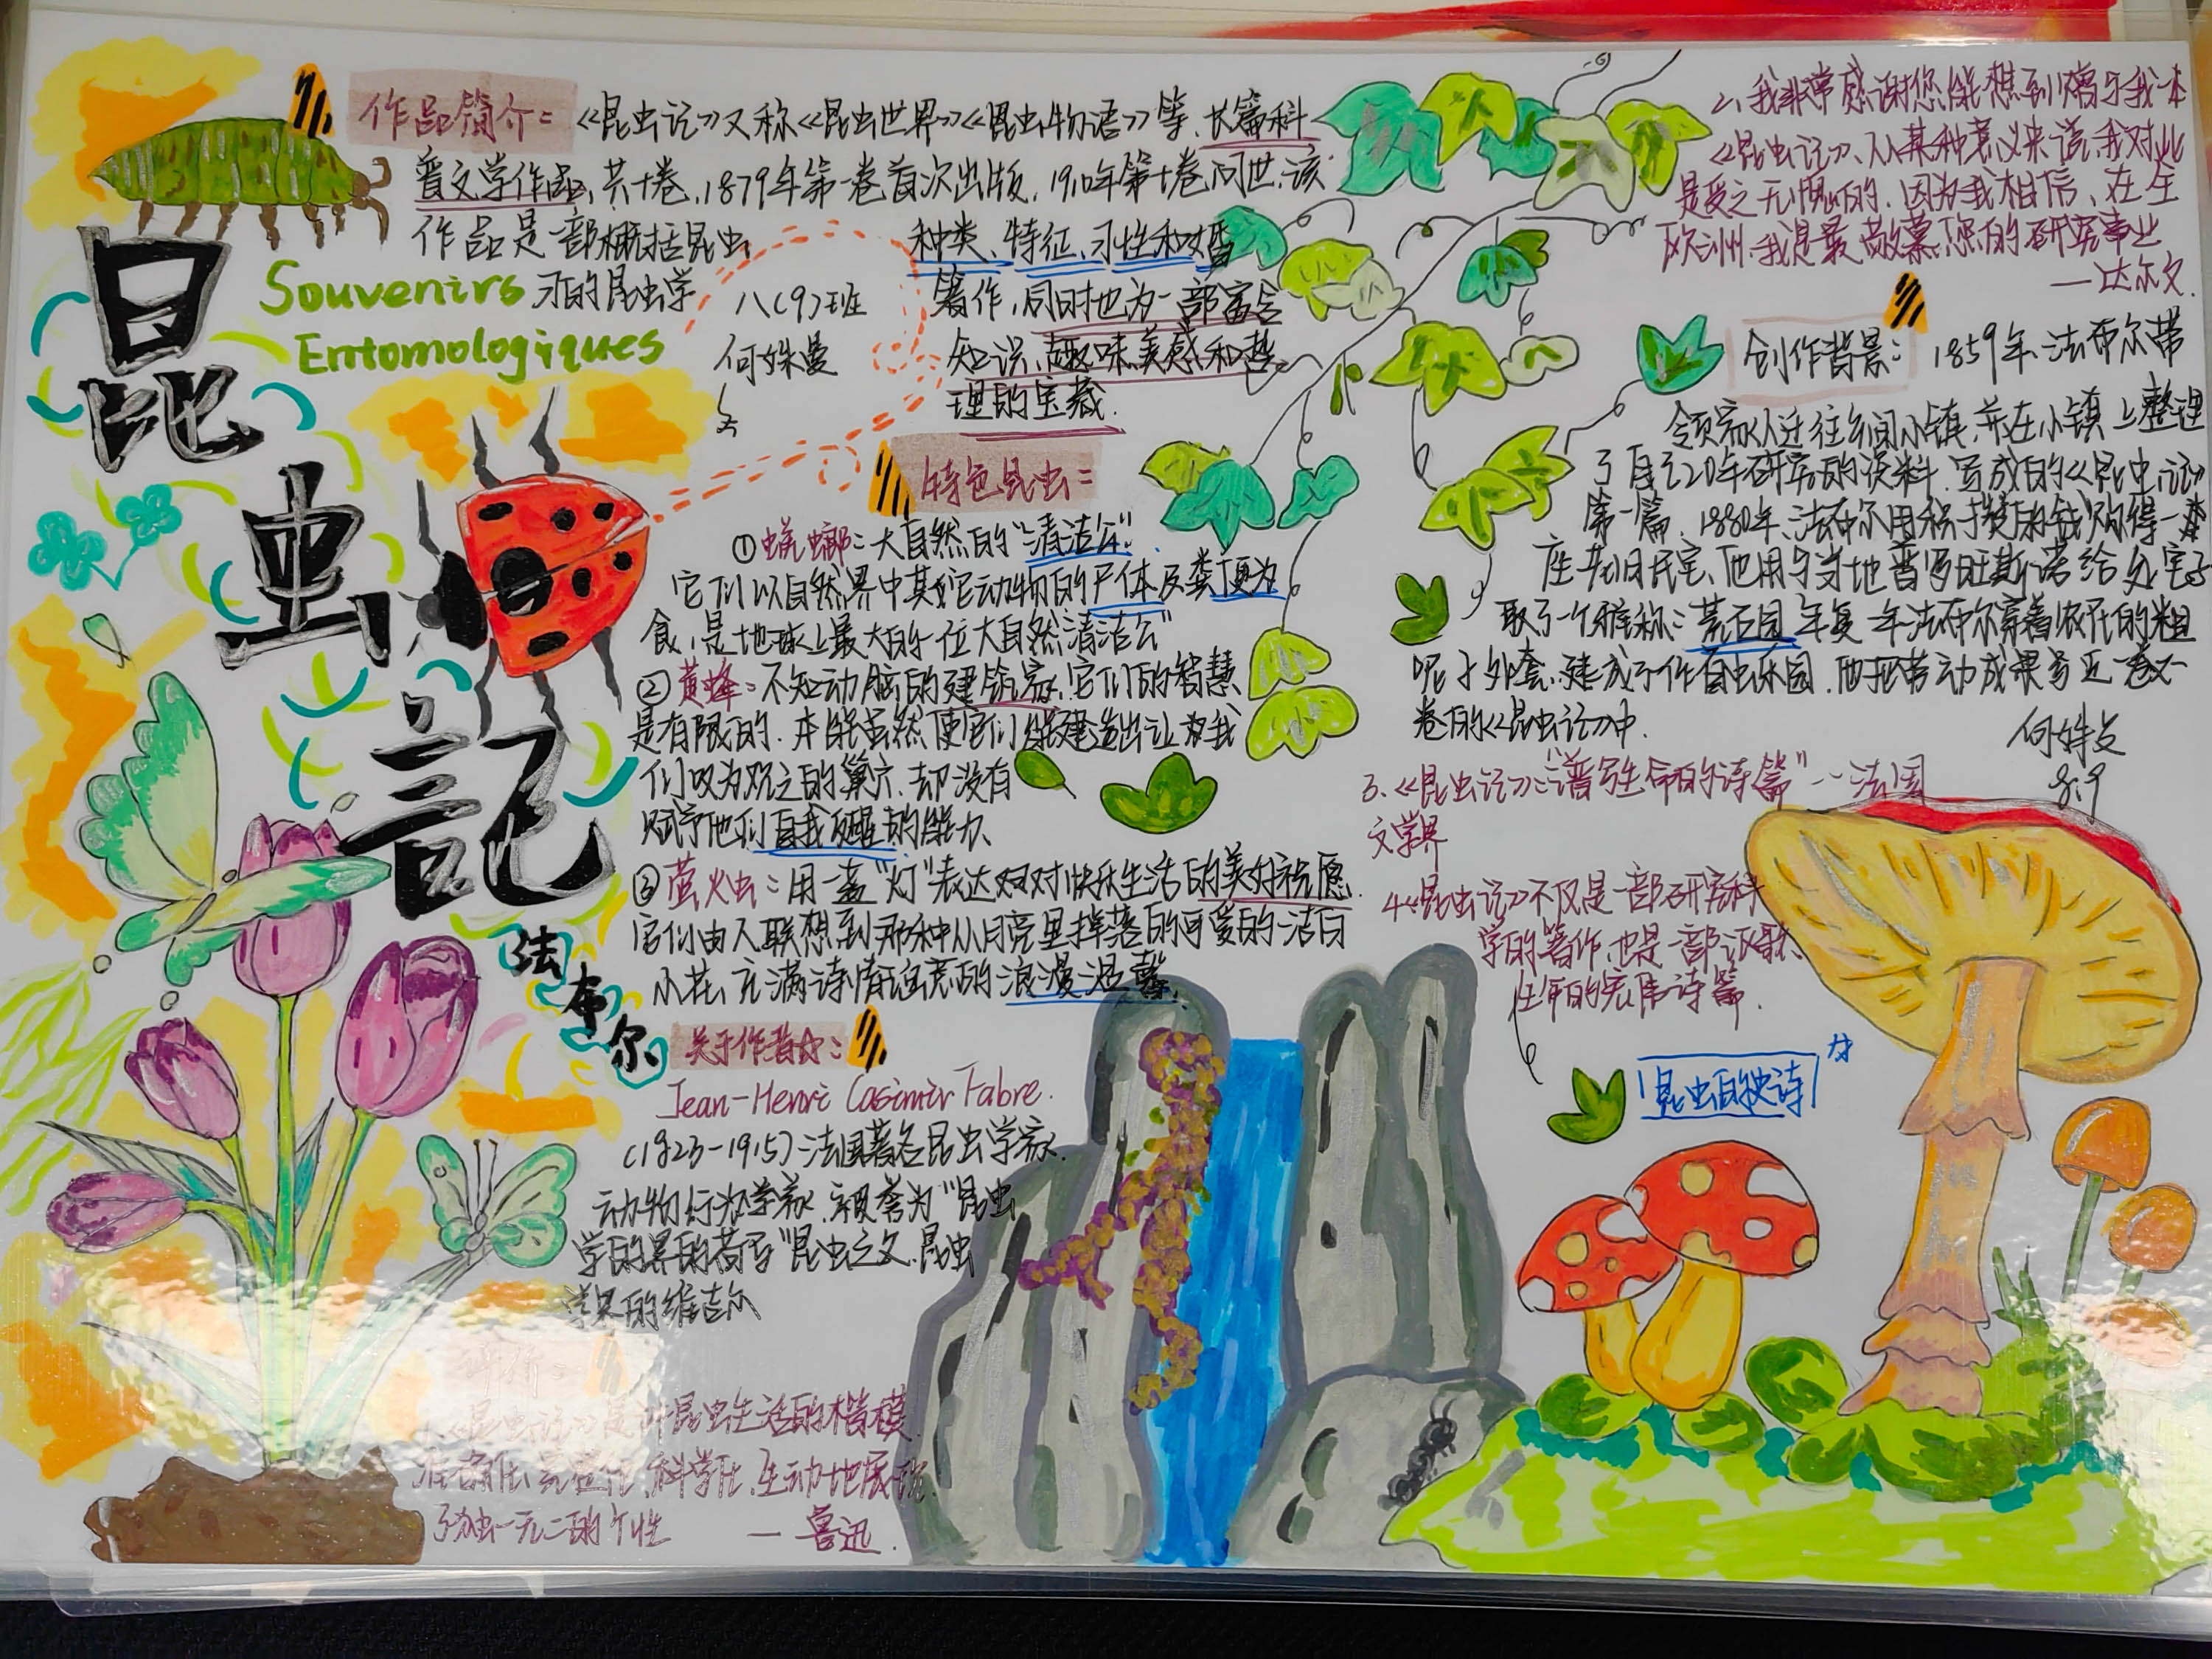 昆虫記
Souvenirs
Entomologiques
法布尔
作品简介：《昆虫记》又称《昆虫世界》《昆虫物语》等,长篇科
普文学作品,共十卷,1879年第一卷首次出版,1910年第十卷问世,该
作品是一部概括昆虫种类、特征、习性和婚
习的昆虫学著作,同时也为一部富含
知识、趣味美感和哲
理的宝藏.
八(9)班
何姝曼
特色昆虫：
①蜣螂：大自然的“清洁公”
它们以自然界中其它动物的尸体及粪便为
食,是地球上最大的一位大自然清洁公”
②黄蜂：不知动脑的建筑家,它们的智慧
是有限的.本能虽然使它们能建造出让我
们叹为观之的巢穴,却没有
赋予他们自我反醒的能力、
③萤火虫：用一盏“灯”表达对对快乐生活的美好祝愿.
它们由人联想到那种从月亮里掉落的可爱的洁白
小花,充满诗情画意的浪漫温馨.
关于作者：
Jean-Henri Casimir Fabre.
(1823-1915)法国著名昆虫学家.
动物行为学家,被誉为“昆虫
学的界的荷马”昆虫之父.昆虫
学界的维吉尔
《昆虫记》是昆虫生活的楷模
科学化、生动地展现
了独一无二的个性
—鲁迅.
2、我非常感谢您能想到赠予我一本
《昆虫记》、从某种意义来说,我对此
是受之无愧的.因为我相信、在全
欧洲,我是最敬慕您的研究事业
—达尔文.
创作背景：1859年,法布尔带
领家人迁往乡间小镇,并在小镇上整理
了自己20年研究的资料,写成的《昆虫记》
第一篇,1880年,法布尔用积于攒的钱购得一
座老旧民宅、他用当地普罗旺斯语给处宅子
取了一个雅称：荒石园 年复一年法布尔穿着农民的粗
呢子外套,建成了一作百虫乐园.他把劳动成果写近一卷又一
卷的《昆虫记》中.
8.9
3、《昆虫记》：“谱写生命的诗篇”--法国
文学界
4《昆虫记》不仅是一部研究科
学的著作,也是一部讴歌
生命的宏伟诗篇.
昆虫的史诗